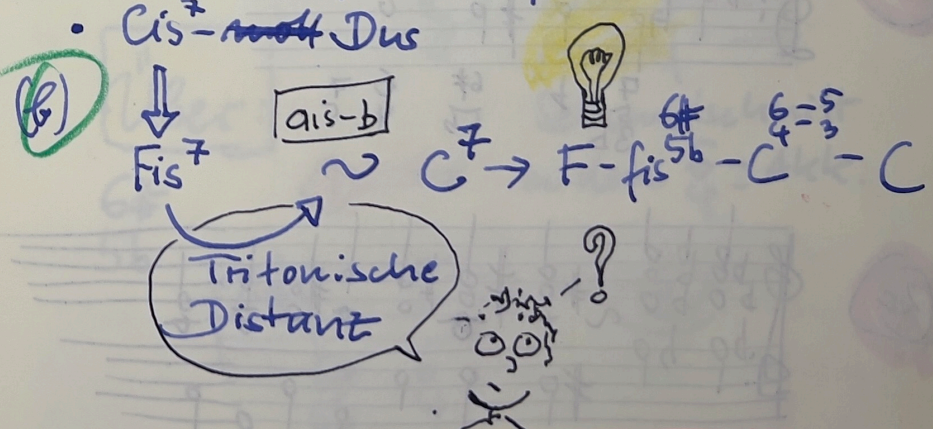 • Cis⁷- Dur
(b)
ais-b
Fis⁷ ~ C⁷ → F - fis 6# 5b - C 6=5 4=3 - C
Tritonische
Distanz
?